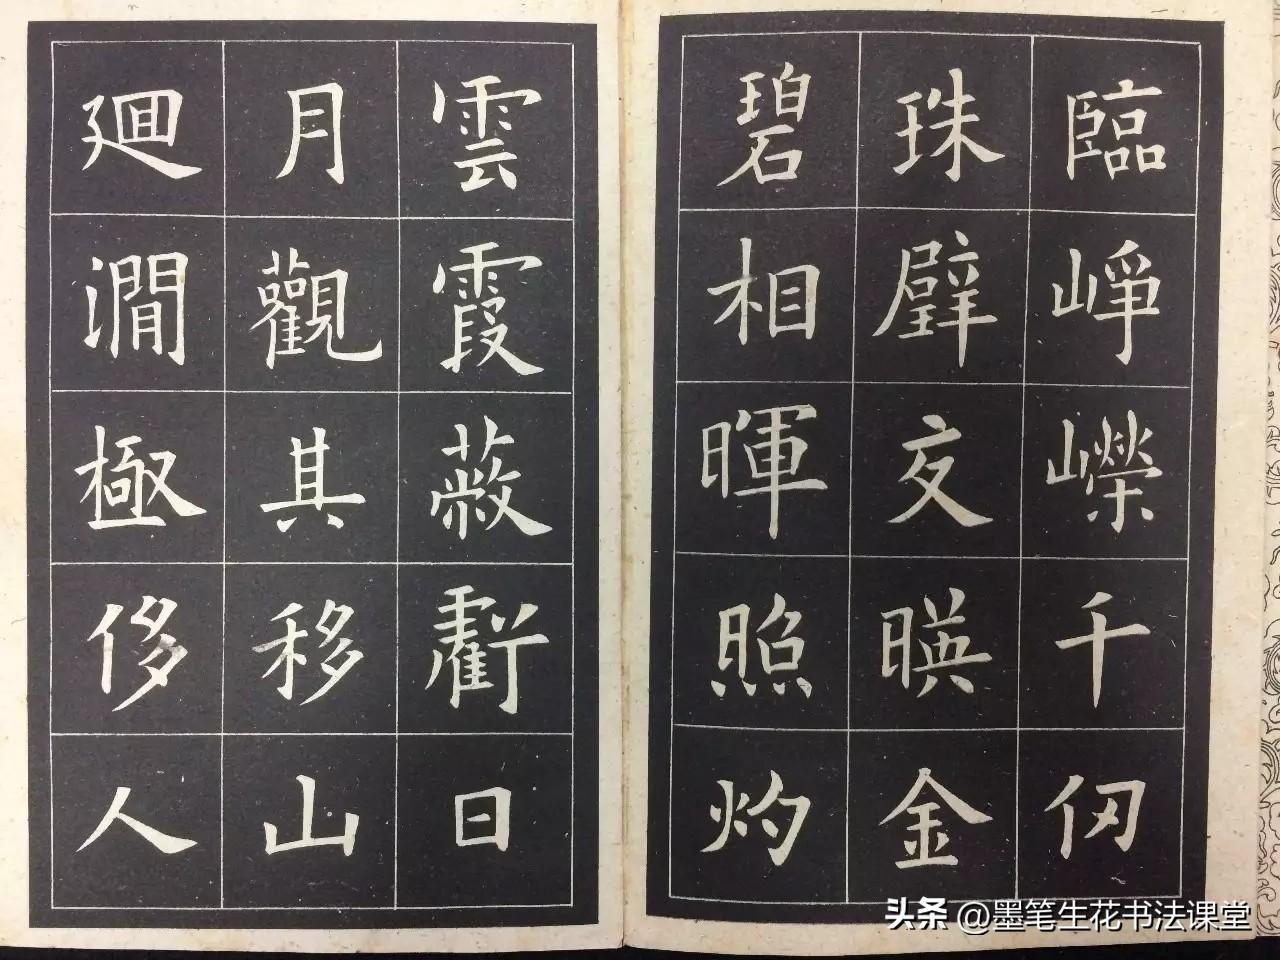 臨崢嶸千仞
珠璧交暎金
碧相暉照灼
雲霞蔽虧日
月觀其移山
廻澗極侈人
头条 @墨笔生花书法课堂